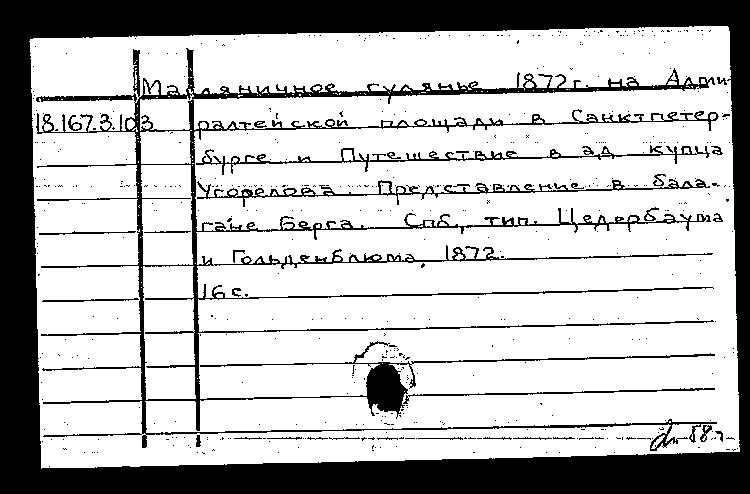 Масляничное гулянье 1872 г. на Адми-
18.167.3.103 ралтейской площади в Санктпетер-
бурге и Путешествие в ад купца
Угорелова. Представление в бала-
гане Берга. Спб., тип. Цедербаума
и Гольденблюма, 1872.
16 с.
58 г